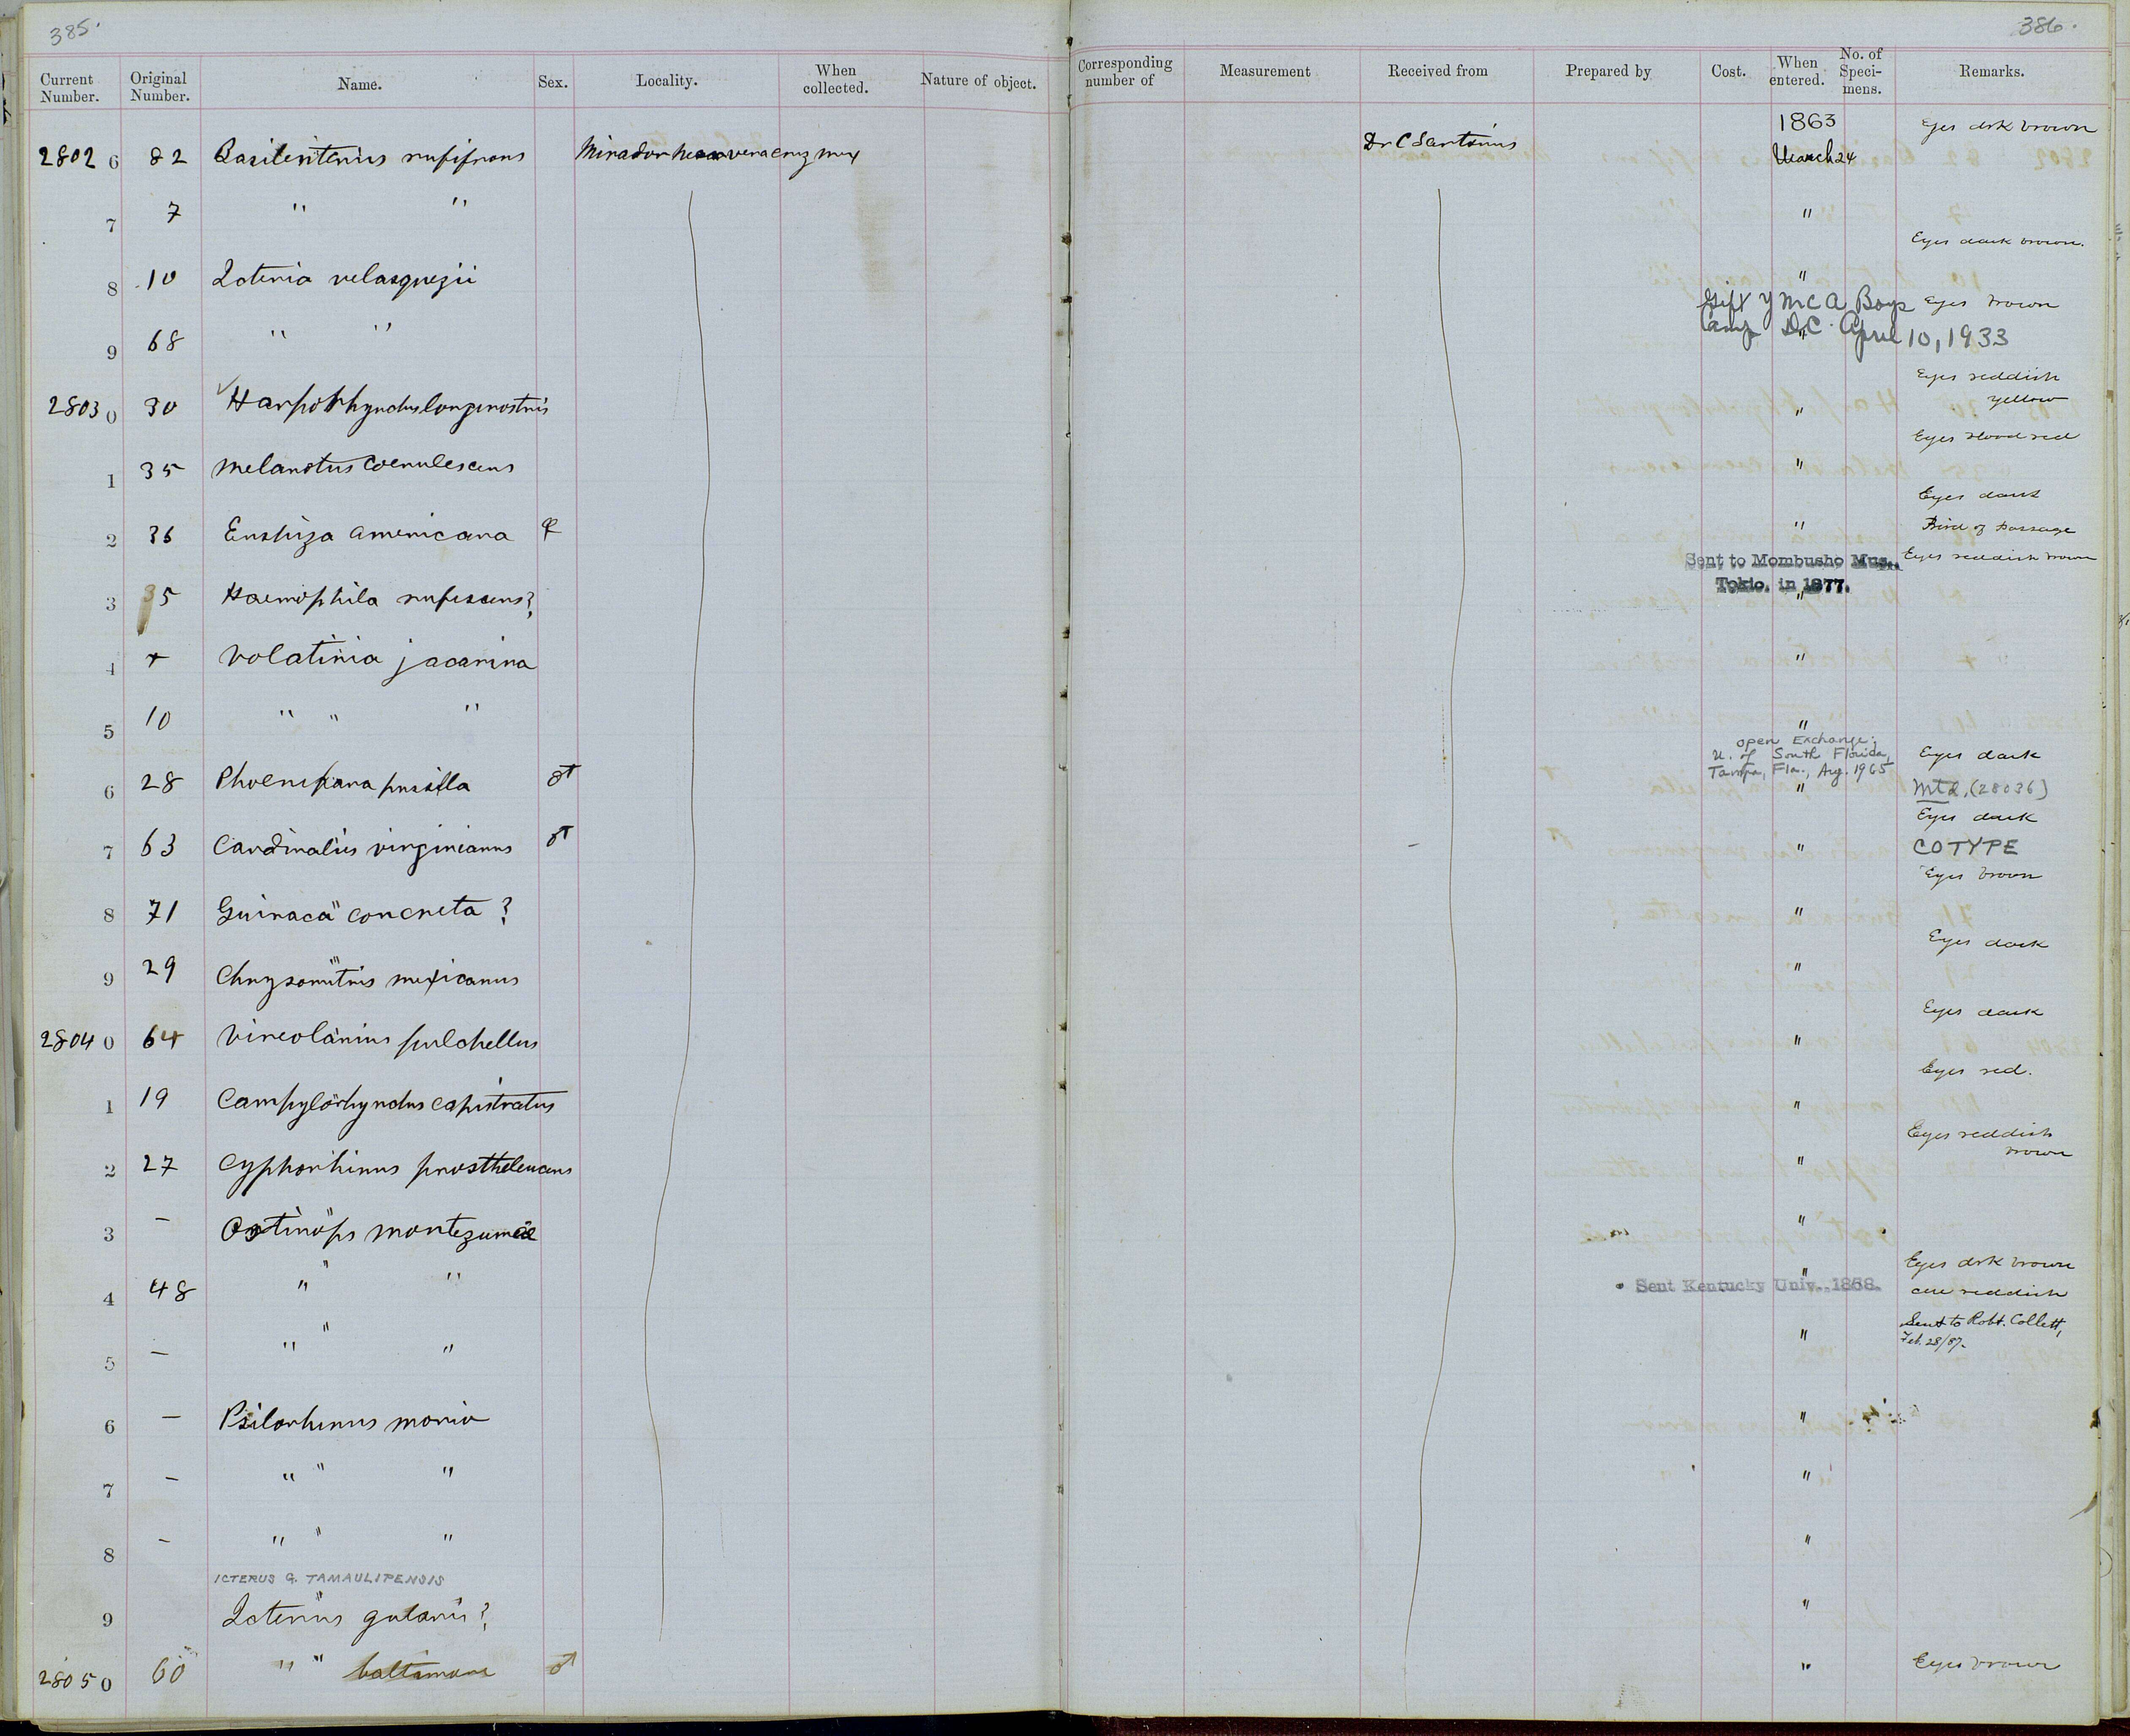 385.
386.
Current Number. Original Number. Name. Sex. Locality. When collected. Nature of object. Corresponding number of Measurement Received from Prepared by Cost. When entered. No. of Speci-mens. Remarks.
1863
2802 6 82 Basileuterius rufifrons Mirador near vera cruz mex Dr C Sartorius March 24 Eyes drk brown
7 7 " " "
Eyes dark brown.
8 10 Icteria velasquezii "
Gift YMCA Boys Eyes brown
9 68 " " " Camp D.C. April 10, 1933
Eyes reddish
2803 0 30 Harporhynchus longirostris " yellow
Eyes blood red
1 35 Melanotus coerulescens "
Eyes dark
2 36 Euspiza americana ♀ " Bird of passage
Sent to Mombusho Mus. Eyes reddish brown
Tokio. in 1877.
3 35 Haemophila rufescens? "
4 + Volatinia jacarina "
5 10 " " " "
open Exchange:
U. of South Florida,
Tampa, Fla., Aug. 1965 Eyes dark
6 28 Phoenipara pusilla ♂ " Mtd. (28036)
Eyes dark
7 63 Cardinalis virginianus ♂ " COTYPE
Eyes brown
8 71 Guiraca concreta ? "
Eyes dark
9 29 Chrysomitris mexicanus "
Eyes dark
2804 0 64 Vireolanius pulchellus "
Eyes red.
1 19 Campylorhynchus capistratus "
Eyes reddish
2 27 Cyphorhinus prostheleucus " brown
3 – Ostinops montezumae "
Eyes drk brown
4 48 " " " " Sent Kentucky Univ. 1868. cere reddish
Sent to Robt. Collett,
5 – " " " " Feb. 28/87.
6 – Psilorhinus morio "
7 – " " " "
8 – " " " "
ICTERUS G. TAMAULIPENSIS
9 Icterus gularis? "
2805 0 60 " " baltimore ♂ " Eyes brown